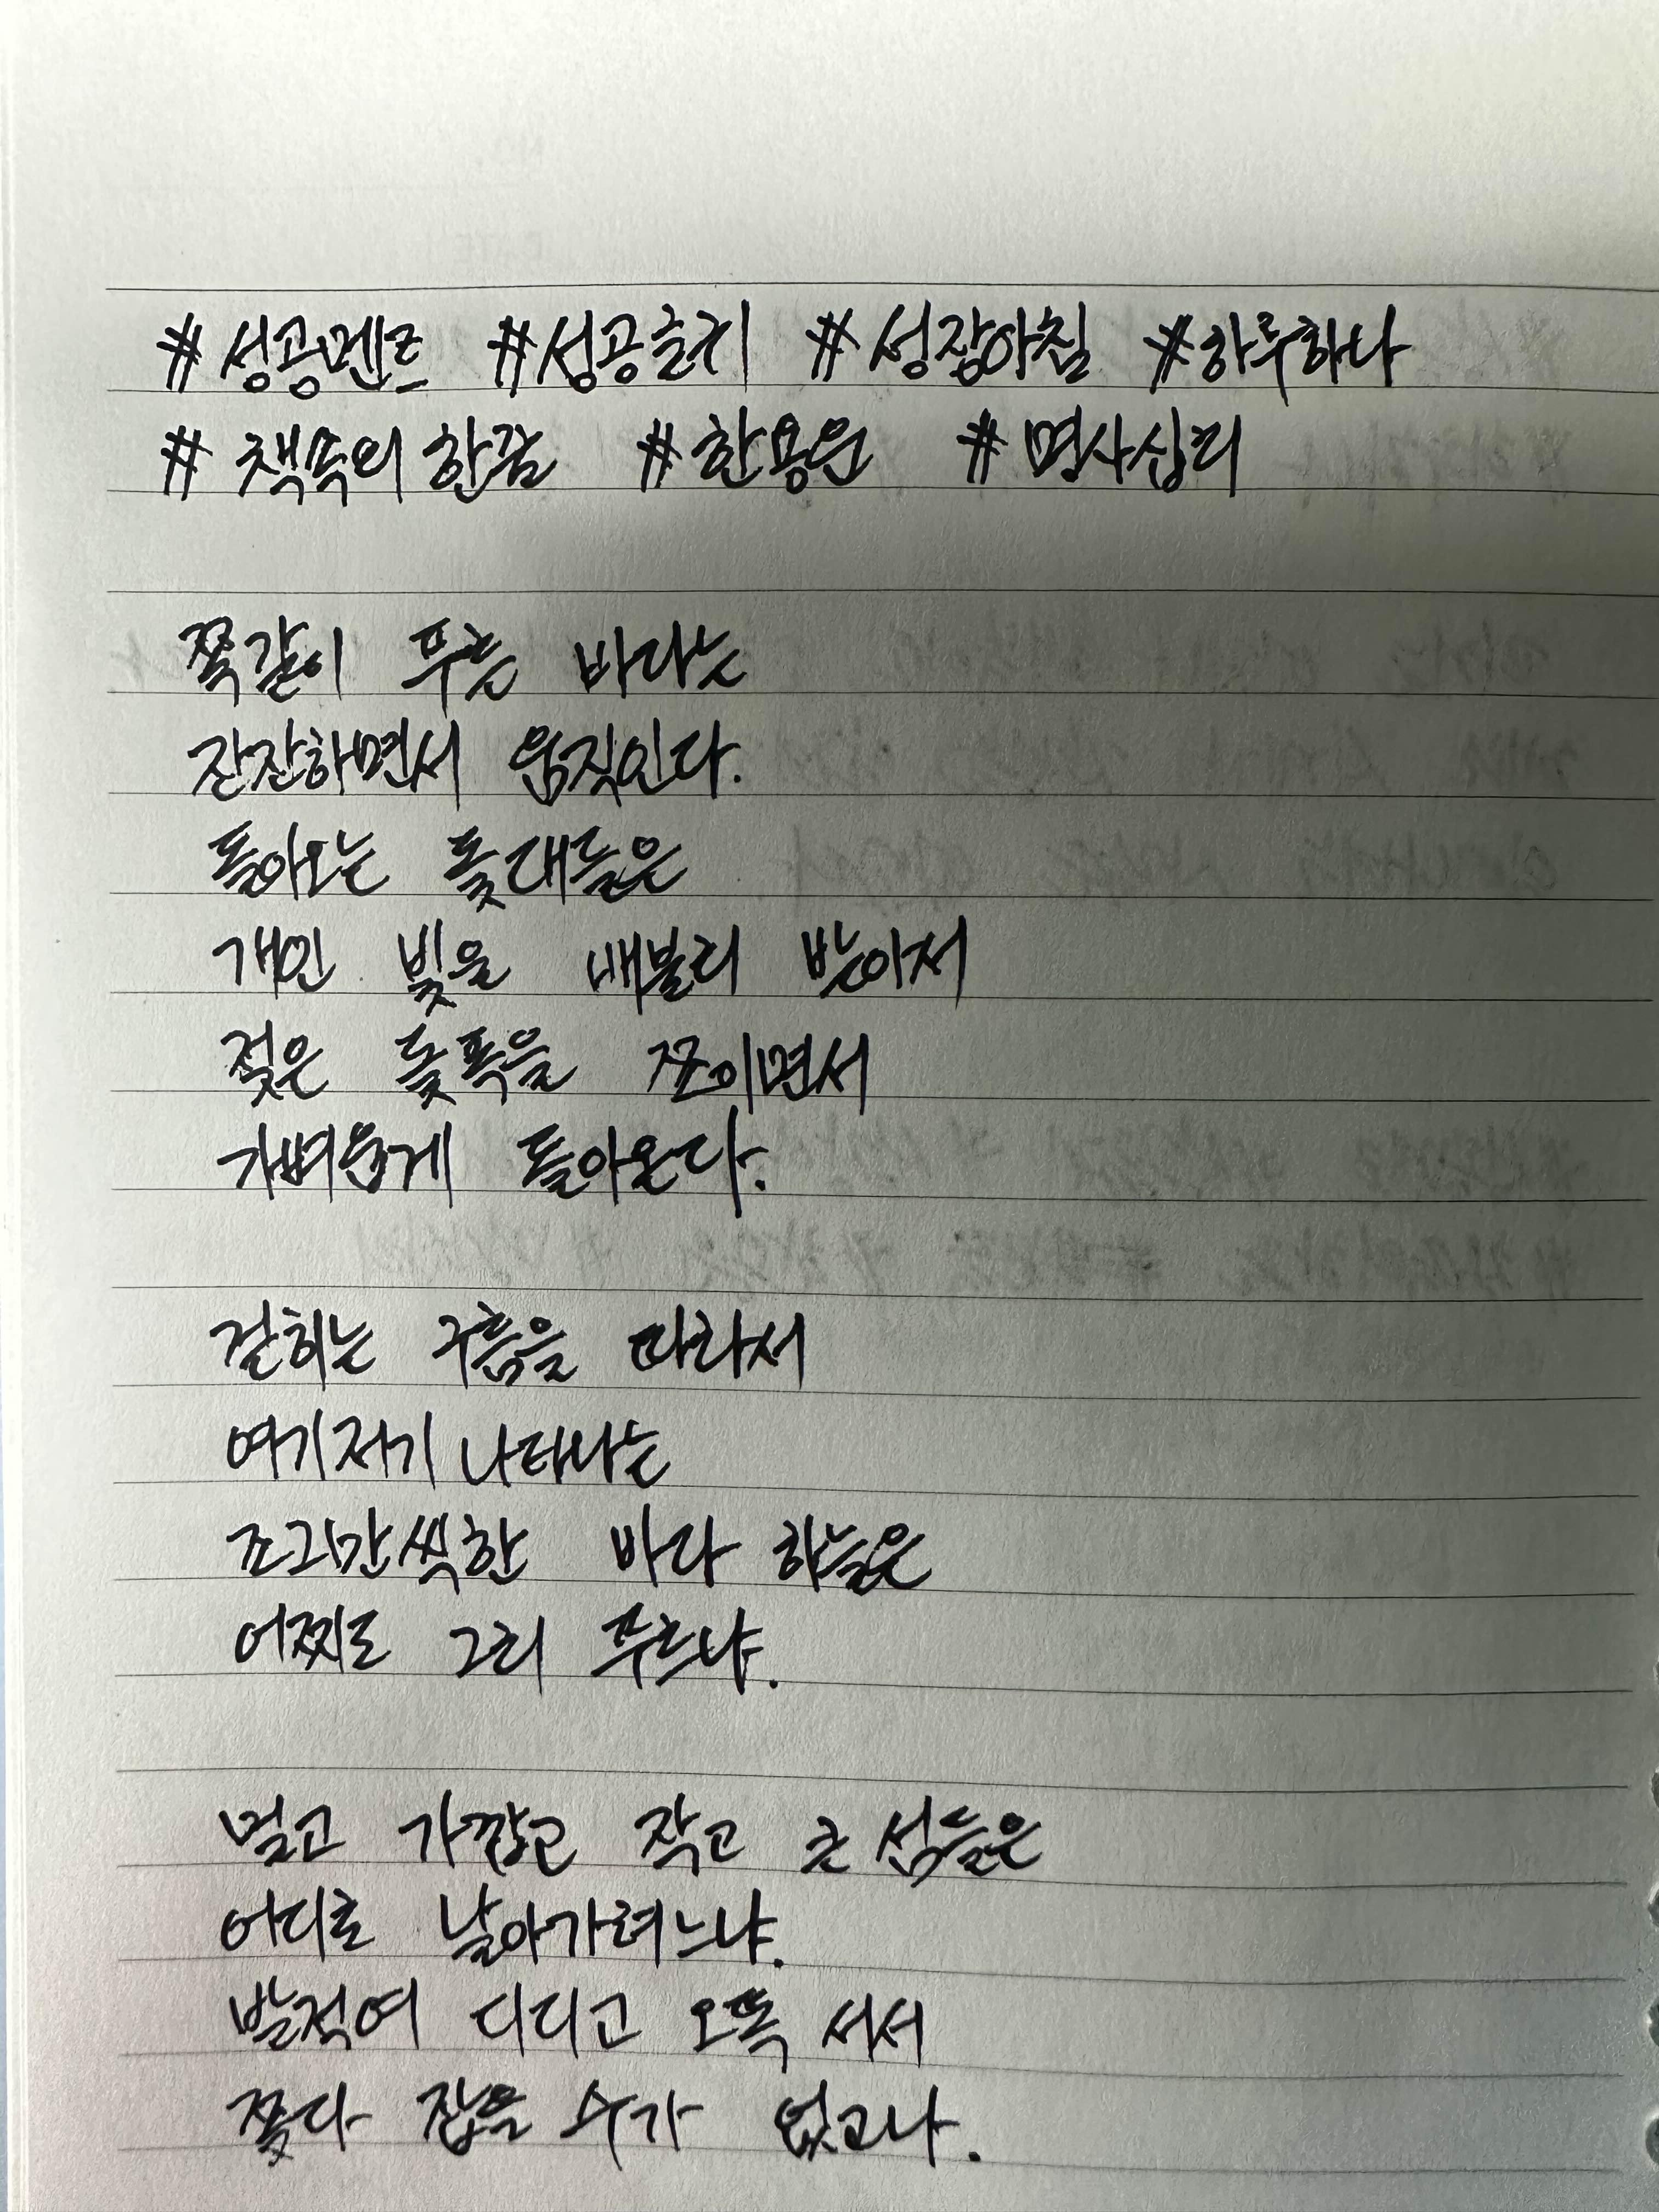 #성공멘토 #성공줄기 #성장아침 #하루하나
#책뜩의 한줌 #한용운 #명사십리
쪽같이 푸른 바다는
잔잔하면서 움직인다.
돌아오는 돛대들은
개인 빛을 배불리 받아서
젖은 돛폭을 쪼이면서
가벼웁게 돌아온다.
걷히는 구름을 따라서
여기저기 나타나는
조그만씩한 바다 하늘은
어찌도 그리 푸르냐.
멀고 가깝고 작고 큰 섬들은
어디로 날아가려느냐.
발적여 디디고 오똑 서서
쫓다 잡을 수가 없고나.